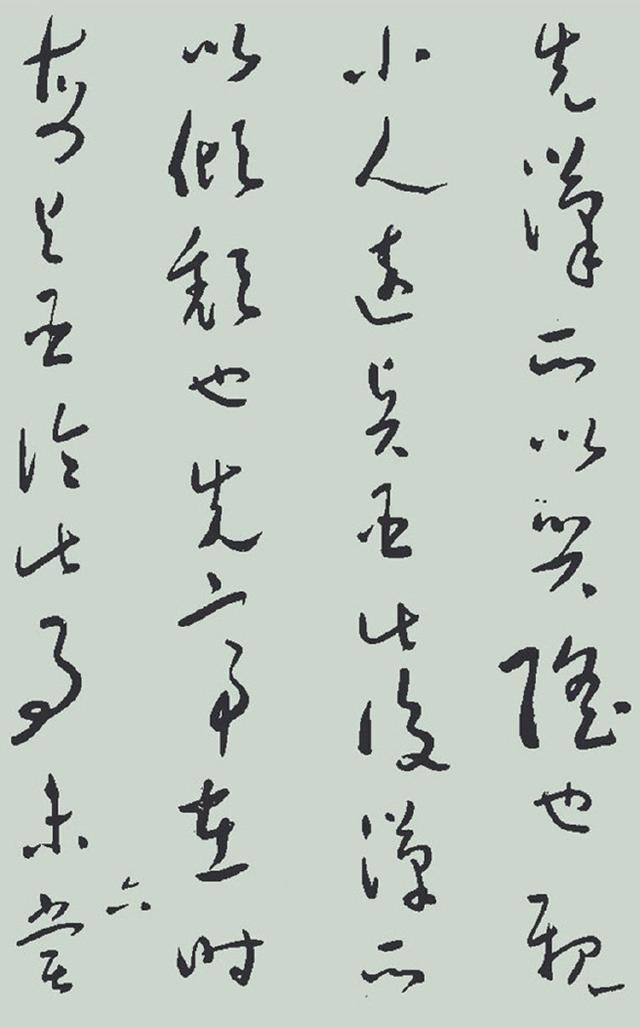 先漢所以興隆也親
小人遠賢臣此後漢所
以傾頹也先帝在時
每與臣論此事未嘗
六